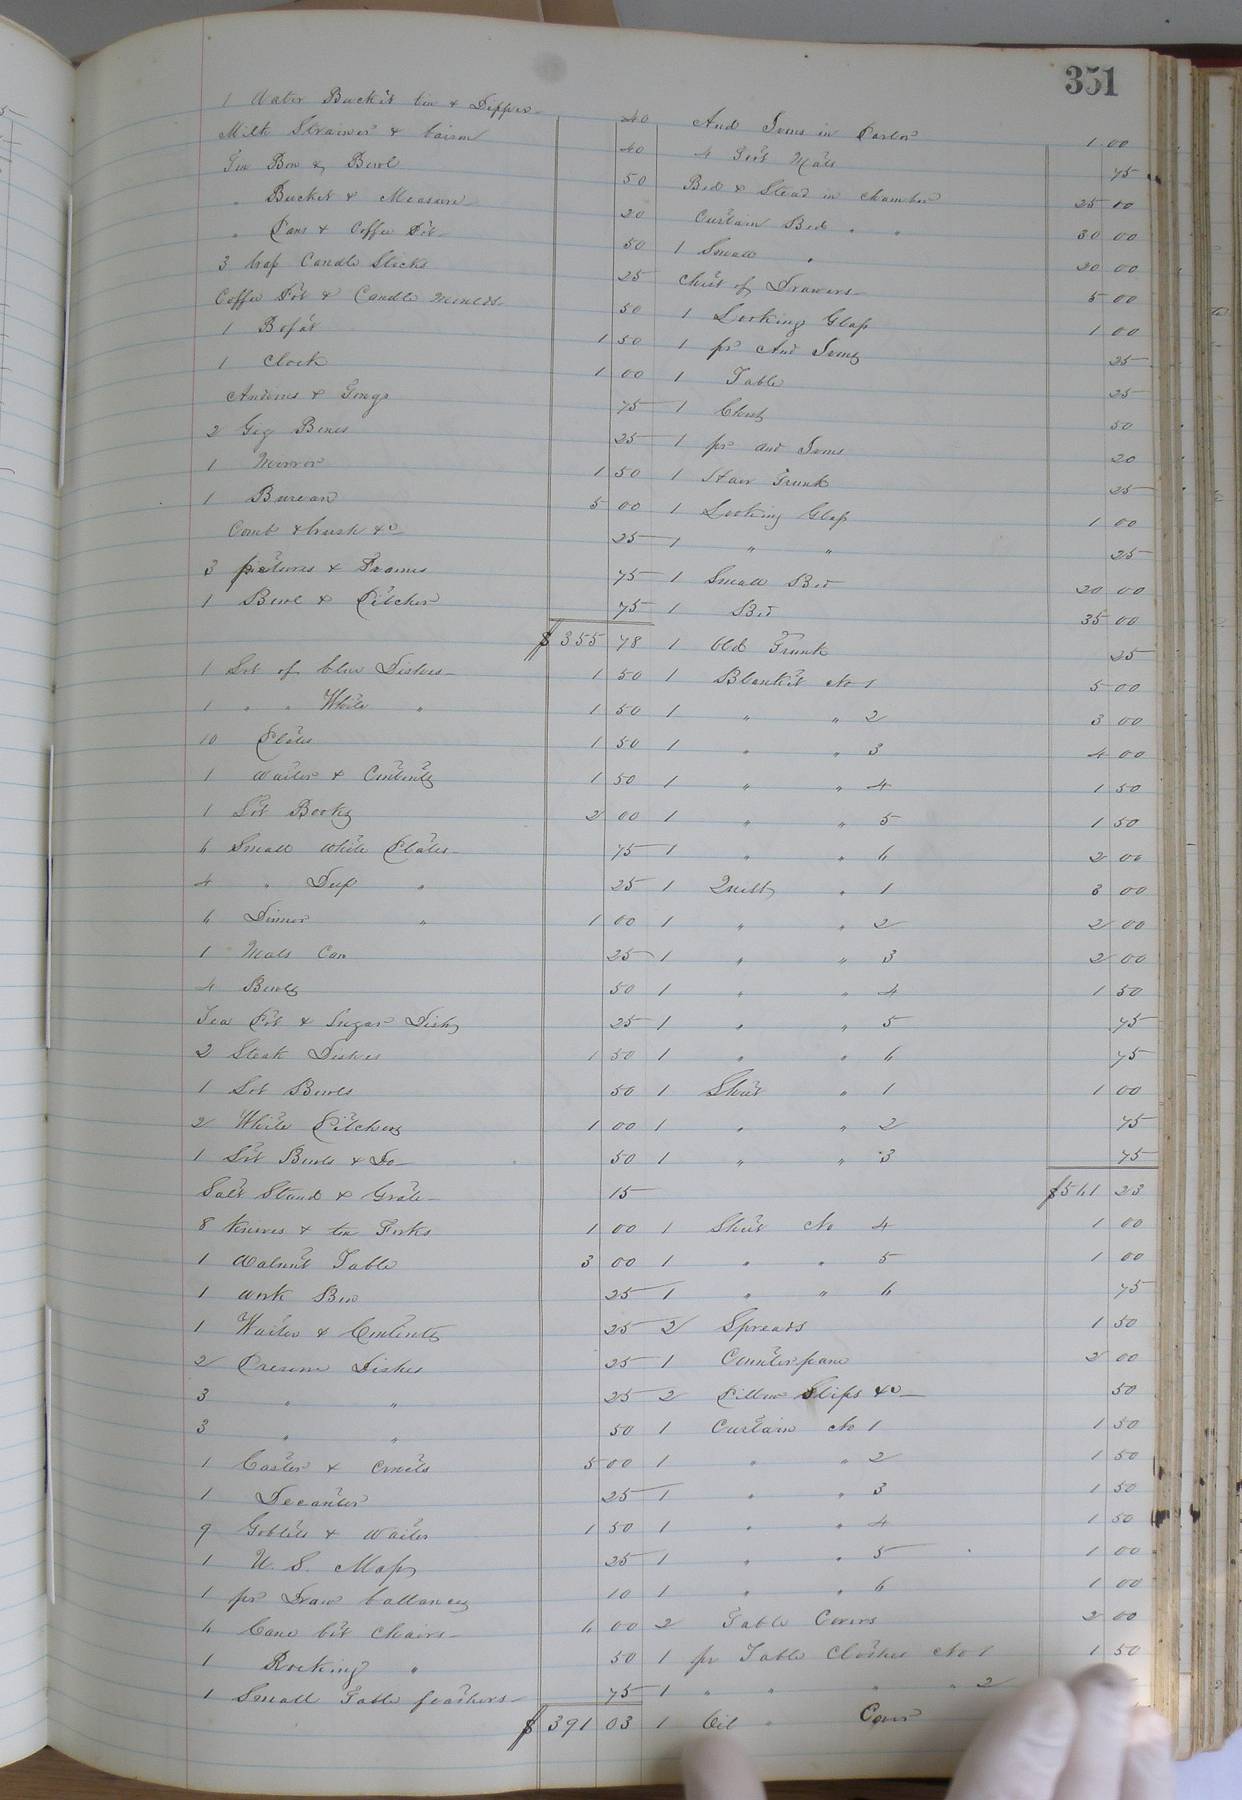 351
1 Water Bucket tin & Dipper 40
Milk Strainer & baisin 40
Tin Box & Bowl 50
" Bucket & Measure 20
" Pans & Coffee Pot 50
3 brass Candle Sticks 25
Coffee Pot & Candle moulds 50
1 Bofat 1 50
1 Clock 1 00
Andirns & Tongs 75
2 Gig Bines 25
1 Mirror 1 50
1 Bureau 5 00
Comb & brush &c 25
3 pictures & Frames 75
1 Bowl & Pitcher 75
$355 78
1 Set of blue Dishes 1 50
1 " " White " 1 50
10 Plates 1 50
1 Waiter & Contents 1 50
1 Lot Books 2 00
6 Small White Plates 75
4 " Deep " 25
6 Dinner " 1 00
1 Mols Can 25
4 Bowls 50
Tea Pot & Sugar Dish 25
2 Steak Dishes 1 50
1 Lot Bowls 50
2 White Pitchers 1 00
1 Lot Bowls & Do 50
Salt Stand & Grate 15
8 Knives & ten Forks 1 00
1 Walnut Table 3 00
1 Work Box 25
1 Waiter & Contents 25
2 Preserve Dishes 25
3 " " 25
3 " " 50
1 Caster & Cruets 5 00
1 Decanter 25
9 Goblets & Waiter 1 50
1 U. S. Map 25
1 pr Draw ballances 10
6 Cane bot Chairs 6 00
1 Rocking " 50
1 Small Table feathers 75
$391 03
And Irons in Parlor 1 00
4 Foot Mats 75
Bed & Stead in Chamber 25 00
Curtain Bed " " 30 00
1 Small " 20 00
Chest of Drawers 5 00
1 Looking Glass 1 00
1 pr And Irons 25
1 Table 25
1 Chest 50
1 pr and Irons 20
1 Hair Trunk 25
1 Looking Glass 1 00
1 " " 25
1 Small Bed 20 00
1 Bed 35 00
1 Old Trunk 25
1 Blanket No 1 5 00
1 " " 2 3 00
1 " " 3 4 00
1 " " 4 1 50
1 " " 5 1 50
1 " " 6 2 00
1 Quilt " 1 3 00
1 " " 2 2 00
1 " " 3 2 00
1 " " 4 1 50
1 " " 5 75
1 " " 6 75
1 Sheet " 1 1 00
1 " " 2 75
1 " " 3 75
$561 23
1 Sheet No 4 1 00
1 " " 5 1 00
1 " " 6 75
2 Spreads 1 50
1 Counterpane 2 00
2 Pillow Slips &c 50
1 Curtain No 1 1 50
1 " " 2 1 50
1 " " 3 1 50
1 " " 4 1 50
1 " " 5 1 00
1 " " 6 1 00
2 Table Covers 2 00
1 pr Table Clothes No 1 1 50
1 " " " " 2
1 Oil " Cover